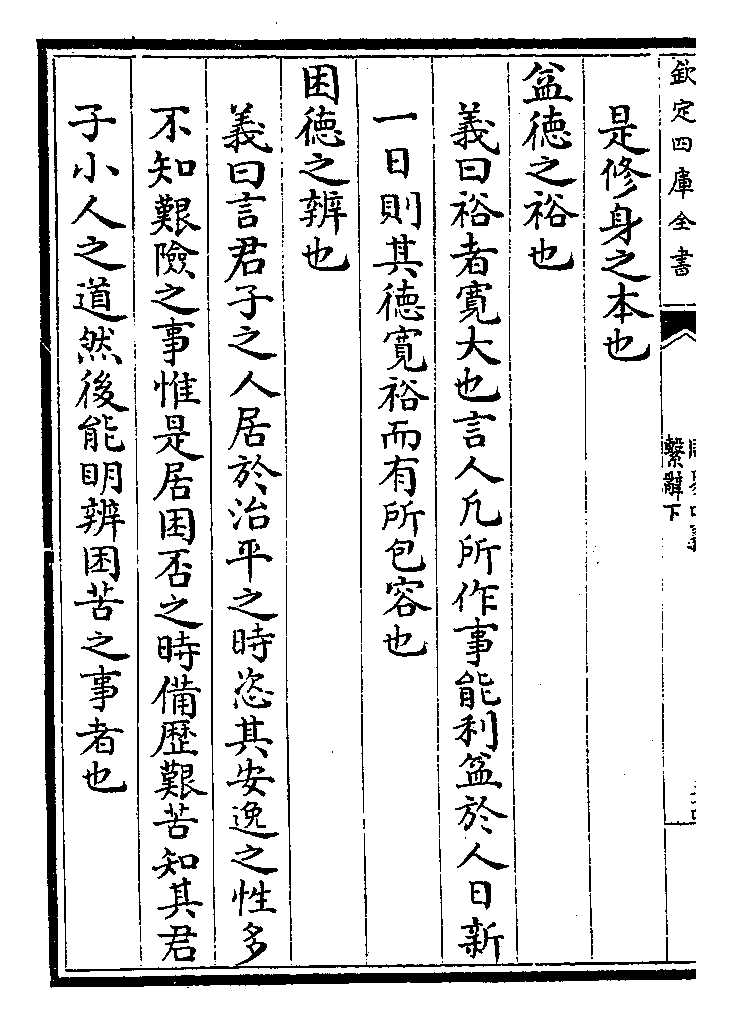 欽定四庫全書
繫辭下
是修身之本也
益德之裕也
義曰裕者寛大也言人凡所作事能利益於人日新
一日則其德寛裕而有所包容也
困德之辨也
義曰言君子之人居於治平之時恣其安逸之性多
不知艱險之事惟是居困否之時備歴艱苦知其君
子小人之道然後能明辨困苦之事者也